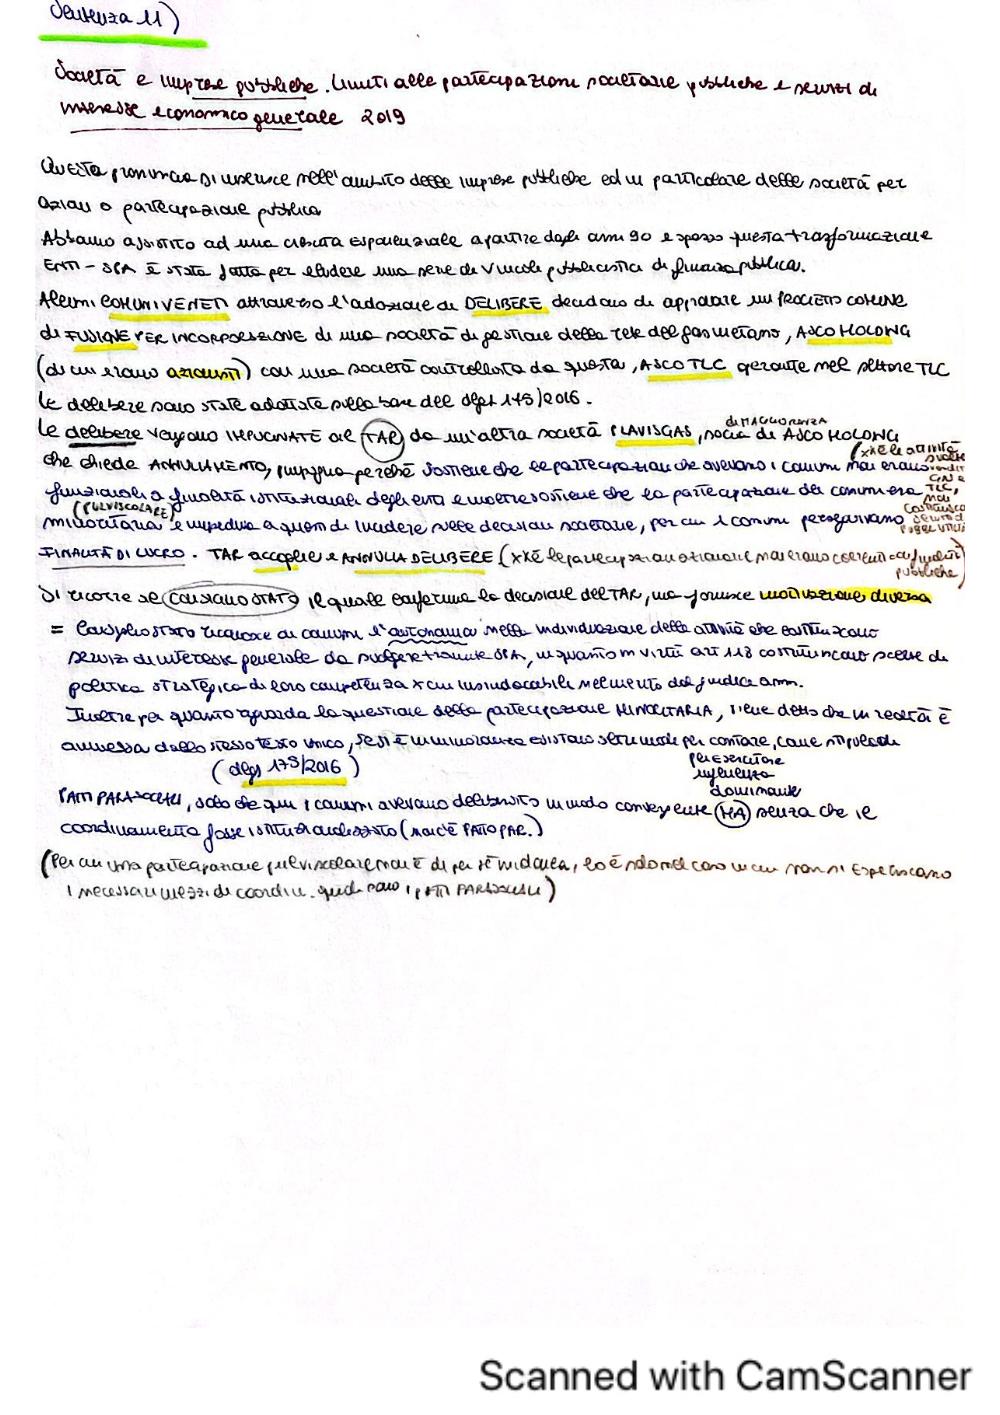 Sentenza 11)
Società e imprese pubbliche. Limiti alle partecipazioni societarie pubbliche e servizi di
interesse economico generale 2019
Questa pronuncia si inserisce nell'ambito delle imprese pubbliche ed in particolare delle società per
azioni a partecipazione pubblica
Abbiamo assistito ad una crescita esponenziale a partire dagli anni 90 e spesso questa trasformazione
ENTI - SPA è stata fatta per eludere una serie di vincoli pubblicistici di finanza pubblica.
Alcuni COMUNI VENETI attraverso l'adozione di DELIBERE decidono di approvare un PROGETTO COMUNE
di FUSIONE PER INCORPORAZIONE di una società di gestione della rete del gas metano, ASCO HOLDING
(di cui erano azionisti) con una società controllata da questa, ASCO TLC gerente nel settore TLC
Le delibere sono state adottate sulla base del dlgs 175/2016.
di MAGGIORANZA
Le delibere vengono IMPUGNATE al TAR da un'altra società PLAVISGAS, socia di ASCO HOLDING
(xké le attività svolte
che chiede ANNULLAMENTO, impugna perché sostiene che le partecipazioni che avevano i comuni mai erano
funzionali a finalità istituzionali degli enti e inoltre sostiene che la partecipazione dei comuni era TLC,
(PULVISCOLARE) non costituisco
minoritaria e impediva a questi di incidere sulle decisioni societarie, per cui i comuni perseguivano servizi di
FINALITÀ DI LUCRO. TAR accoglie e ANNULLA DELIBERE (xké le partecipazioni azionarie mai erano coerenti
pubbliche)
Si ricorre al CONSIGLIO STATO il quale conferma la decisione del TAR, ma fornisce motivazione diversa
= Consiglio stato riconosce ai comuni l'autonomia nella individuazione delle attività che costituiscono
servizi di interesse generale da svolgere tramite SPA, in quanto in virtù art 118 costituiscono scelte di
politica strategica di loro competenza x cui insindacabile nel merito dal giudice amm.
Inoltre per quanto riguarda la questione della partecipazione MINORITARIA, viene detto che in realtà è
ammessa dallo stesso testo unico, se si è in minoranza esistono strumenti per contare, come stipula di
(dlgs 175/2016)
per esercitare
influenza
dominante
PATTI PARASOCIALI, solo che qui i comuni avevano deliberato in modo convergente MA senza che il
coordinamento fosse istituzionalizzato (non c'è PATTO PAR.)
(Per cui una partecipazione pulviscolare non è di per sé inidonea, lo è solo nel caso in cui non si esperiscano
i necessari mezzi di coordin. quali sono i PATTI PARASOCIALI)
Scanned with CamScanner